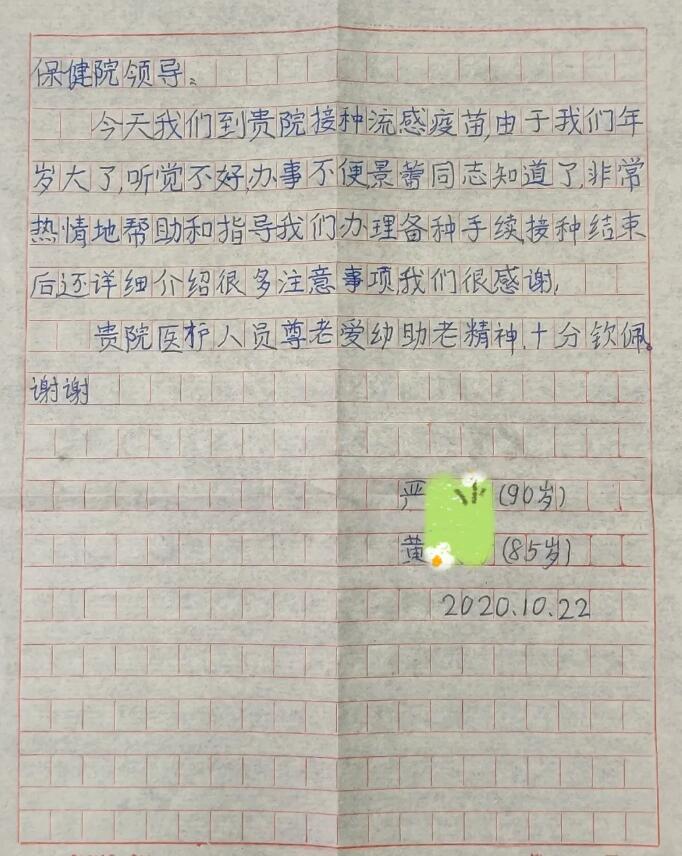 保健院领导:
今天我们到贵院接种流感疫苗,由于我们年
岁大了,听觉不好,办事不便,景蕾同志知道了,非常
热情地帮助和指导我们办理备种手续,接种结束
后还详细介绍很多注意事项,我们很感谢,
贵院医护人员尊老爱幼助老精神,十分钦佩。
谢谢
严 (90岁)
黄 (85岁)
2020.10.22